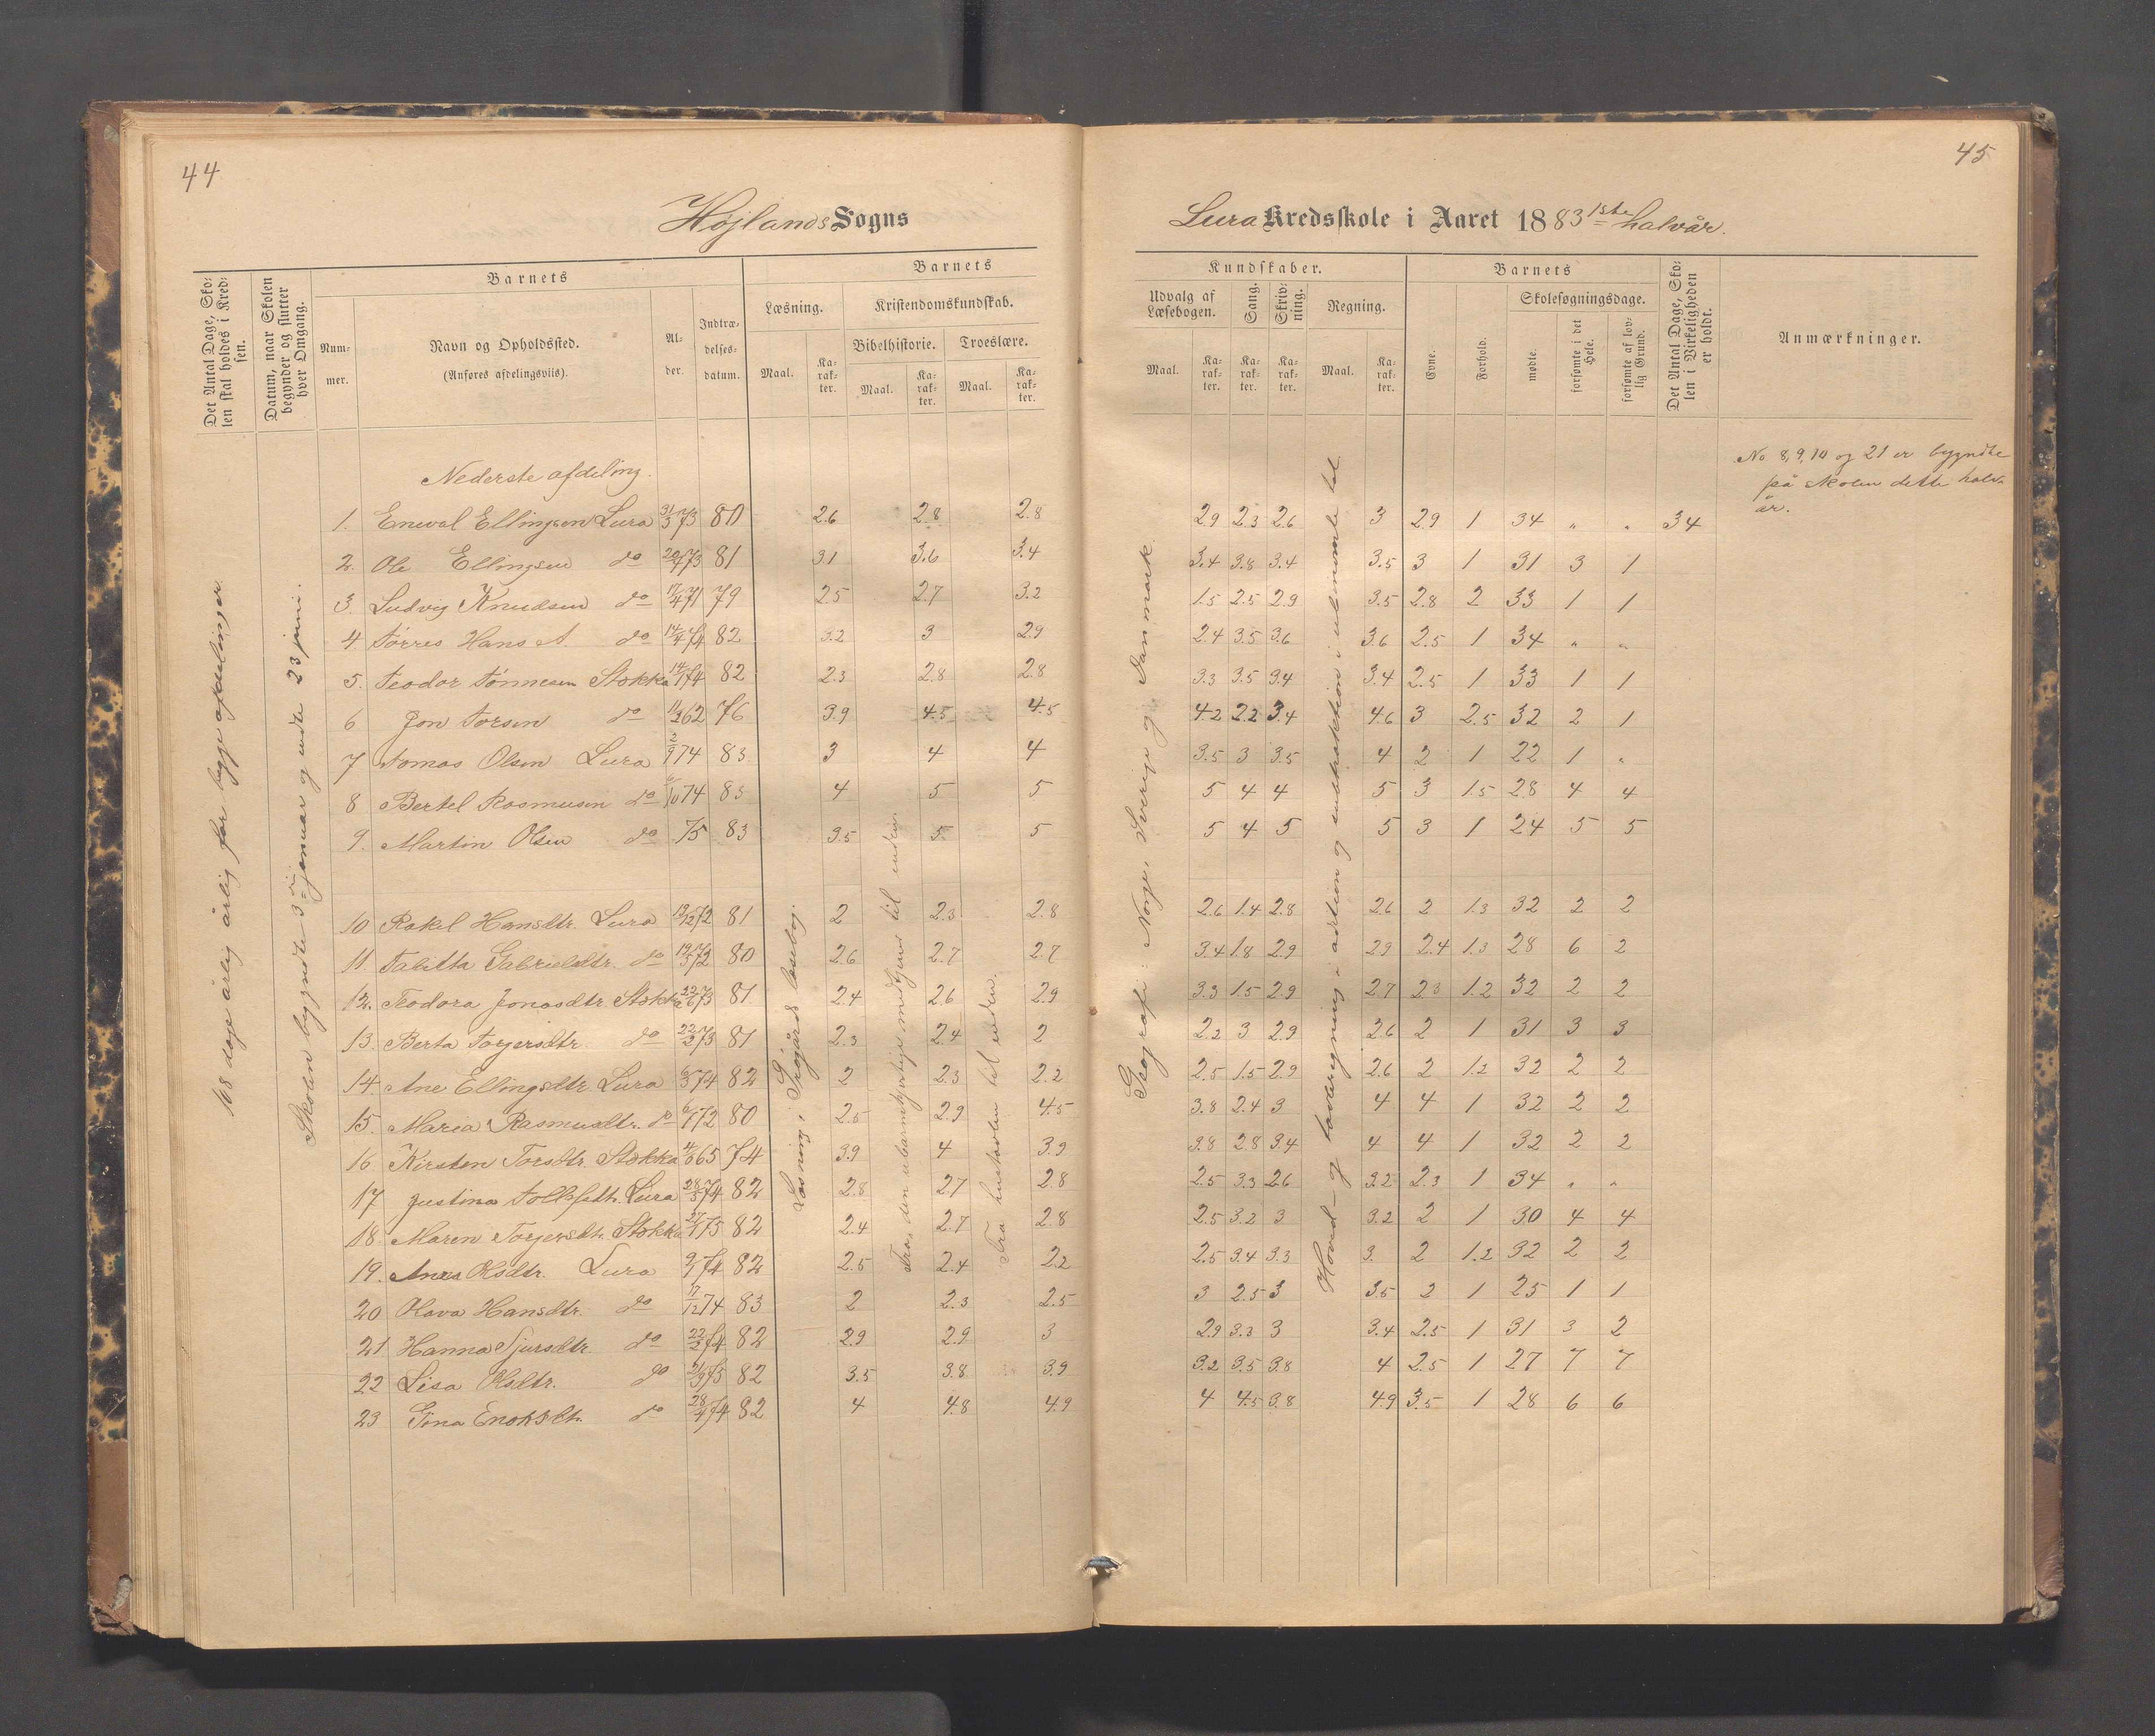 44
Højlands Sogns
Det Antal Dage, Skolen skal holdes i Kredsen.
Datum, naar Skolen begynder og slutter hver Omgang.
Barnets
Nummer.
Navn og Opholdssted.
(Anføres afdelingsviis).
Alder.
Indtrædelsesdatum.
Barnets
Læsning.
Kristendomskundskab.
Bibelhistorie. Troeslære.
Maal. Karakter. Maal. Karakter. Maal. Karakter.
108 dage årlig årlig for begge afdelinger.
Skolen begyndte 3die januar og endte 23 juni.
Læsning i Griegårds læsebog.
Fra den ubarmhjertige medtjener til enden.
Fra hustavlen til enden.
Nederste afdeling.
1. Eneval Ellingsen Lura 31/3 73 80 2.6 2.8 2.8
2. Ole Ellingsen do 20/4 73 81 3.1 3.6 3.4
3. Ludvig Knudsen do 17/4 71 79 2.5 2.7 3.2
4 Tørres Hans A. do 14/4 74 82 3.2 3 2.9
5. Teodor Tønnesen Stokka 14/1 74 82 2.3 2.8 2.8
6 Jon Torsen do 11/2 62 76 3.9 4.5 4.5
7 Tomas Olsen Lura 2/9 74 83 3 4 4
8 Bertel Rasmusen do /10 74 83 4 5 5
9. Martin Olsen do 75 83 3.5 5 5
10 Rakel Hansdtr. Lura 19/12 72 81 2 2.3 2.8
11. Tabitta Gabrielsdtr. do 19/5 72 80 2.6 2.7 2.7
12. Teodora Jonasdtr Stokka 22/6 73 81 2.4 2.6 2.9
13. Berta Torgersdtr. do 22/2 73 81 2.3 2.4 2
14. Ane Ellingsdtr. Lura 6/3 74 82 2 2.3 2.2
15. Maria Rasmusdtr. do 6/1 72 80 2.5 2.9 4.5
16 Kirsten Torsdtr. Stokka 4/6 65 74 3.9 4 3.9
17 Justina Tollefsdtr. Lura 28/5 74 82 2.8 2.7 2.8
18. Maren Torgersdtr. Stokka 27/1 75 82 2.4 2.7 2.8
19. Anna Olsdtr. Lura 9/1 74 82 2.5 2.4 2.2
20 Olava Hansdtr. do 17/12 74 83 2 2.3 2.5
21 Hanna Sjursdtr. do 22/2 74 82 2.9 2.9 3
22 Lisa Olsdtr. do 21/3 75 82 3.5 3.8 3.9
23 Tina Enoksdtr. do 28/4 74 82 4 4.8 4.9
45
Lura Kredsskole i Aaret 1883 1ste halvår.
Kundskaber.
Udvalg af Læsebogen. Sang. Skrivning. Regning.
Maal. Karakter. Karakter. Karakter. Maal. Karakter.
Barnets
Evne. Forhold.
Skolesøgningsdage.
mødte. forsømte i det Hele. forsømte af lovlig Grund.
Det Antal Dage, Skolen i Virkeligheden er holdt.
Anmærkninger.
Geografi: Norge, Sverige og Danmark.
Hoved- og tavleregning i addition og subtraktion i ubenævnte tal
No. 8, 9, 10 og 21 er begyndte
på skolen dette halv-
år.
2.9 2.3 2.6 3 2.9 1 34 " " 34
3.4 3.8 3.4 3.5 3 1 31 3 1
1.5 2.5 2.9 3.5 2.8 2 33 1 1
2.4 3.5 3.6 3.6 2.5 1 34 " "
3.3 3.5 3.4 3.4 2.5 1 33 1 1
4.2 2.2 3.4 4.6 3 2.5 32 2 1
3.5 3 3.5 4 2 1 22 1 "
5 4 4 5 3 1.5 28 4 4
5 4 5 5 3 1 24 5 5
2.6 1.4 2.8 2.6 2 1.3 32 2 2
3.4 1.8 2.9 2.9 2.4 1.3 28 6 2
3.3 1.5 2.9 2.7 2.3 1.2 32 2 2
2.2 3 2.9 2.6 2 1 31 3 3
2.5 1.5 2.9 2.6 2 1.2 32 2 2
3.8 2.4 3 4 4 1 32 2 2
3.8 2.8 3.4 4 4 1 32 2 2
2.5 3.3 2.6 3.2 2.3 1 34 " "
2.5 3.2 3 3.2 2 1 30 4 4
2.5 3.4 3.3 3. 2 1.2 32 2 2
3 2.5 3 3.5 2 1 25 1 1
2.9 3.3 3 3.4 2.5 1 31 3 2
3.2 3.5 3.8 4 2.5 1 27 7 7
4 4.5 3.8 4.9 3.5 1 28 6 6